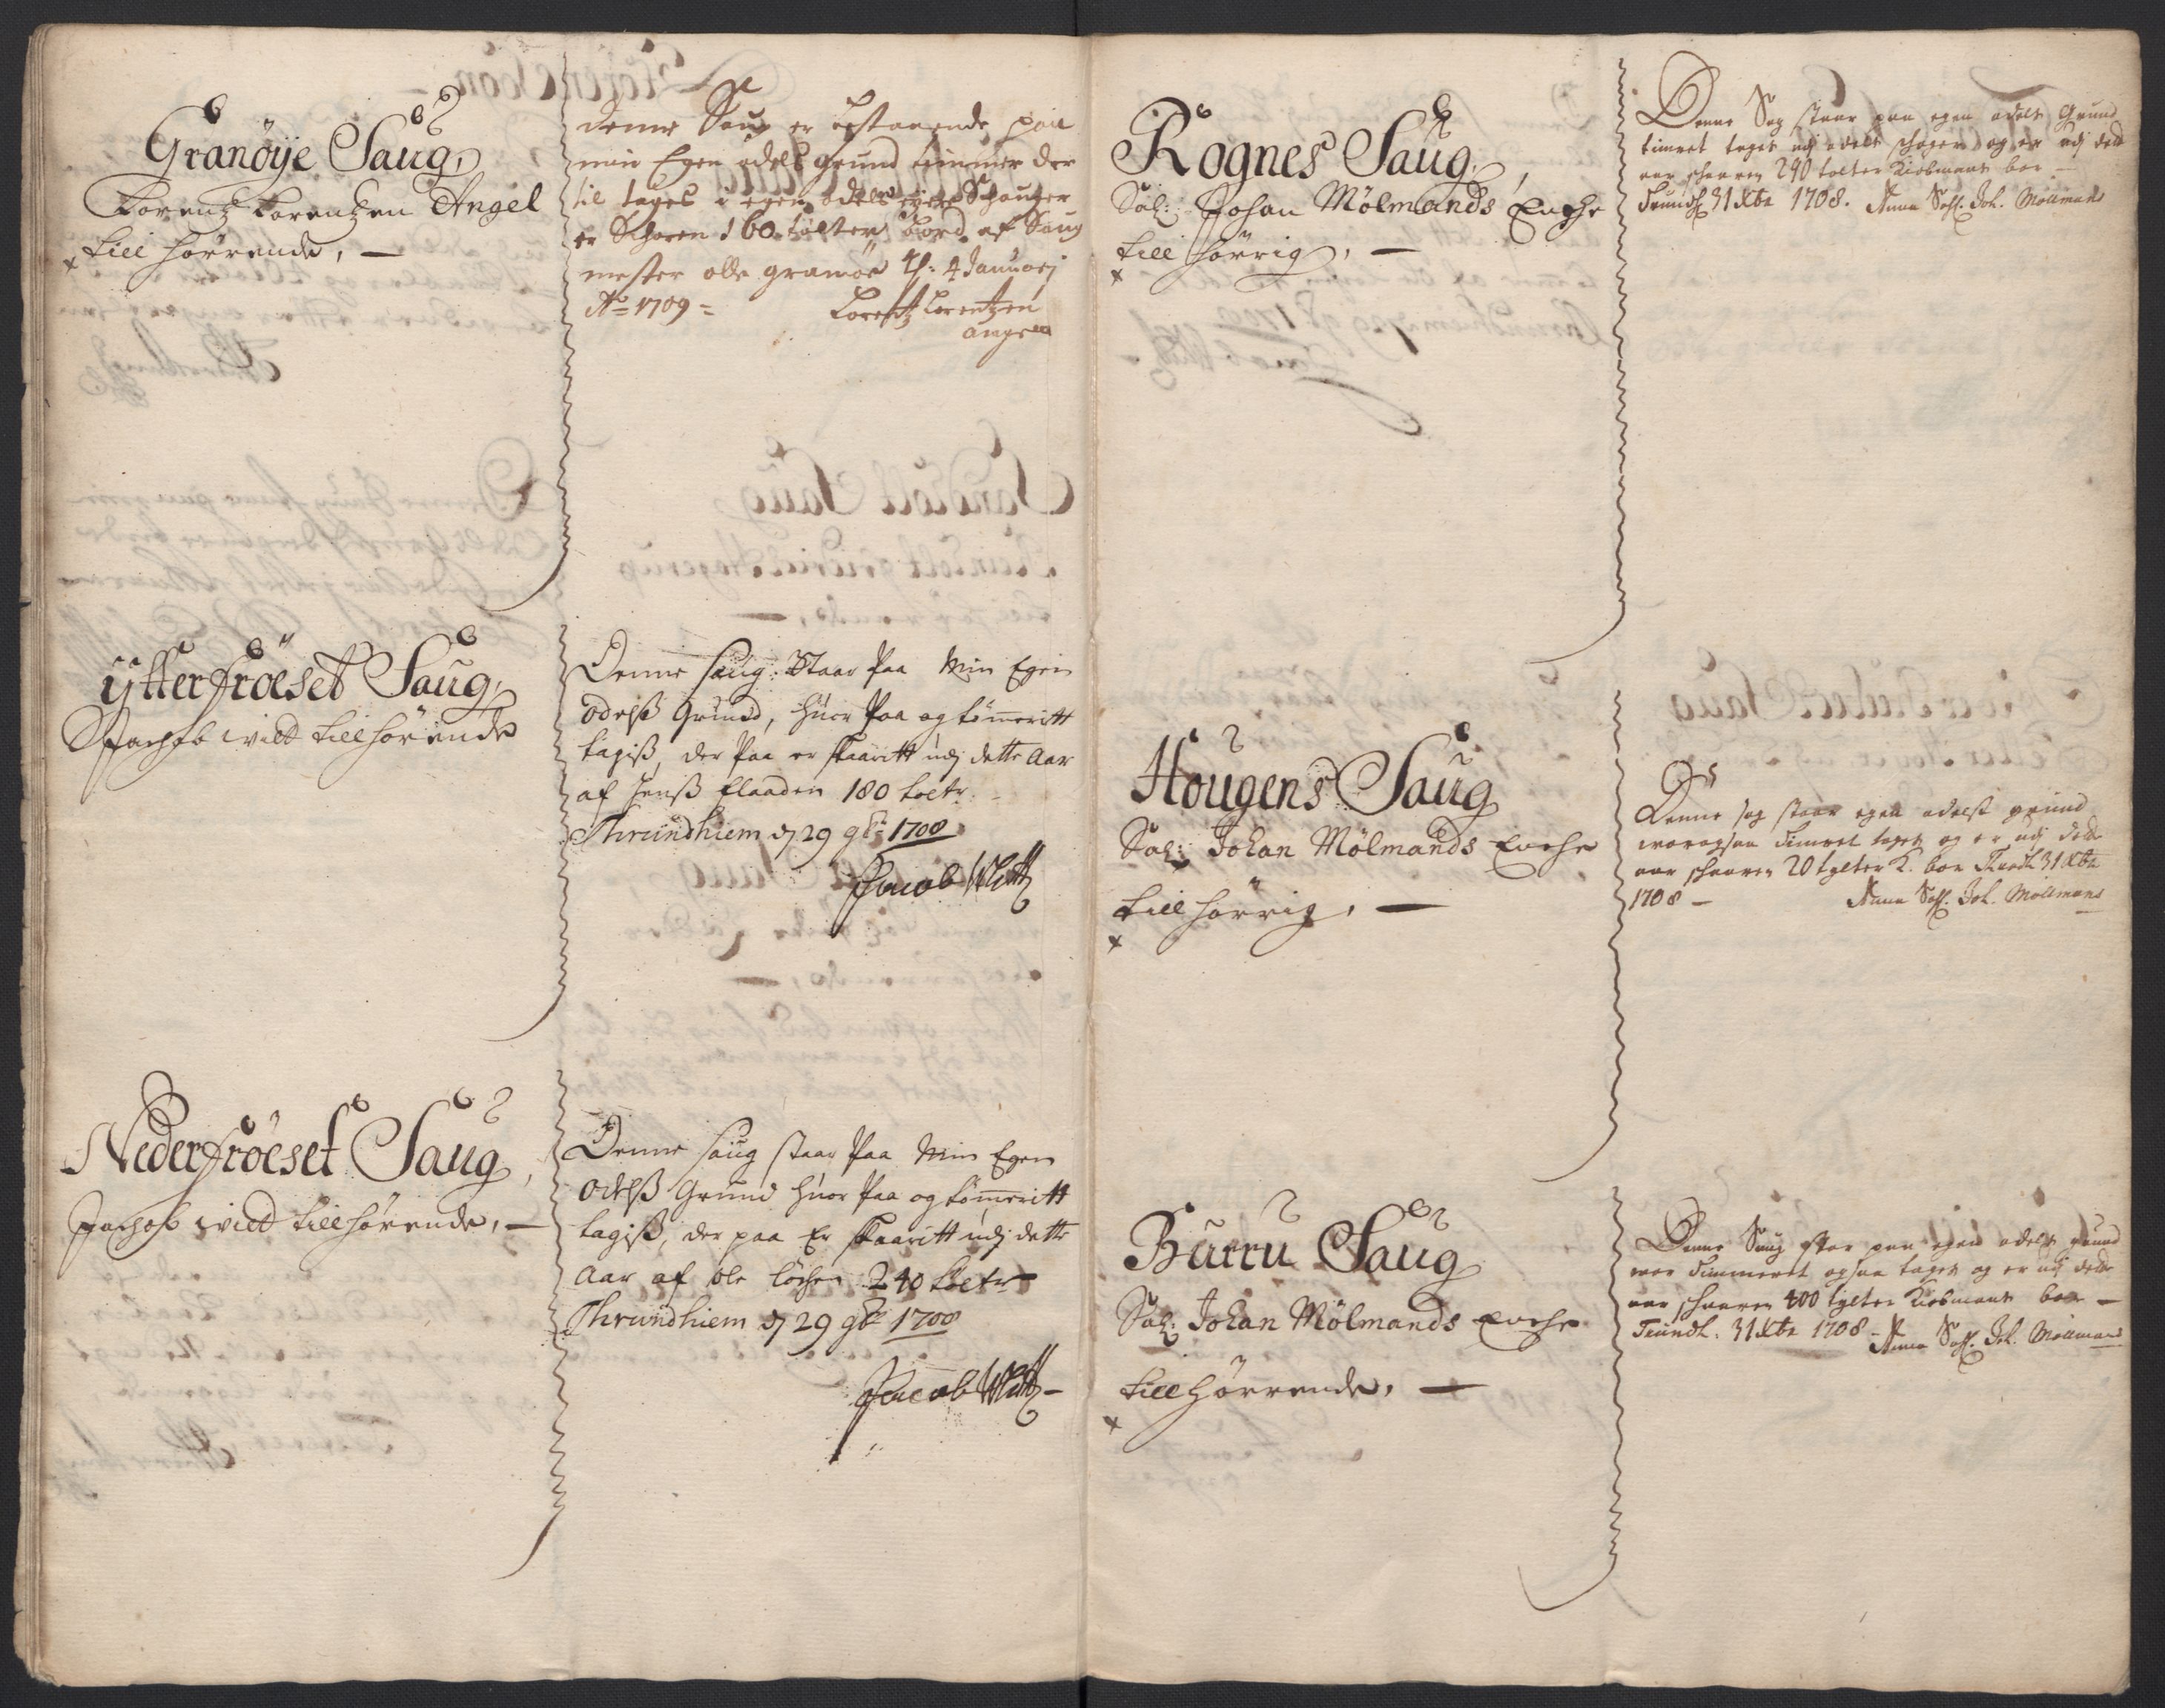 Granöÿe Saug,
Lorentz Lorentzen Angel
till hörrende, —
denne Saug er bestaaende paa
min Egen odels grund timmer der
til tages i egen odels Schouger
er Schoren 160 tolter bord af Saug
mester olle gramöe d: 4 Januarj
Ao 1709 =
Lorentz Lorentzen
angell
ÿtterfröeset Saug,
Jachob widt till hörende
Denne saug: Staar Paa Min Egen
odelß Grund, huor Paa og tömmeritt
tagiß, der Paa er skaaritt udj dette Aar
af Jenß flaaden 180 tolter
Thrundhiem d 29 9br 1708
Jacob Witt
Nederfröeset Saug,
Jachob widt till hörende, —
Denne saug staar Paa Min Egen
odelß Grund huor Paa og tömmeritt
tagiß, der paa Er skaaritt udj dette
Aar af ole 240 tolter
Thrundhiem d 29 9br 1708
Jacob Witt —
Rognes Saug,
Sal: Johan Mölmands Enche
till hörrig, —
Denne Sag staar paa egen odels Grund
timret tages udj odels schoger og er udj dette
aar schaaren 240 tolter Kiöbmants bor —
Trundh 31 Xbr 1708. Anna Sahl. Joh. Mollmans
Hougens Saug
Sal: Johan Mölmands Enche
till hörrig, —
Denne sag staar egen odelst grund
worogsaa Timret tages og er udj dette
aar schaaren 20 tylter K. bor Trundh 31 Xbr
1708 — Anna Sahl. Joh. Mollmans
Burru Saug
Sal: Johan Mölmands Enche
till hörrende, —
Denne Saug staar paa egen odels grund
wor Timmeret ogsaa tages og er udj dette
aar schaaren 400 tylter Kiobmants bor —
Trundh: 31 Xbr 1708 — Anna Sahl. Joh. Mollmans